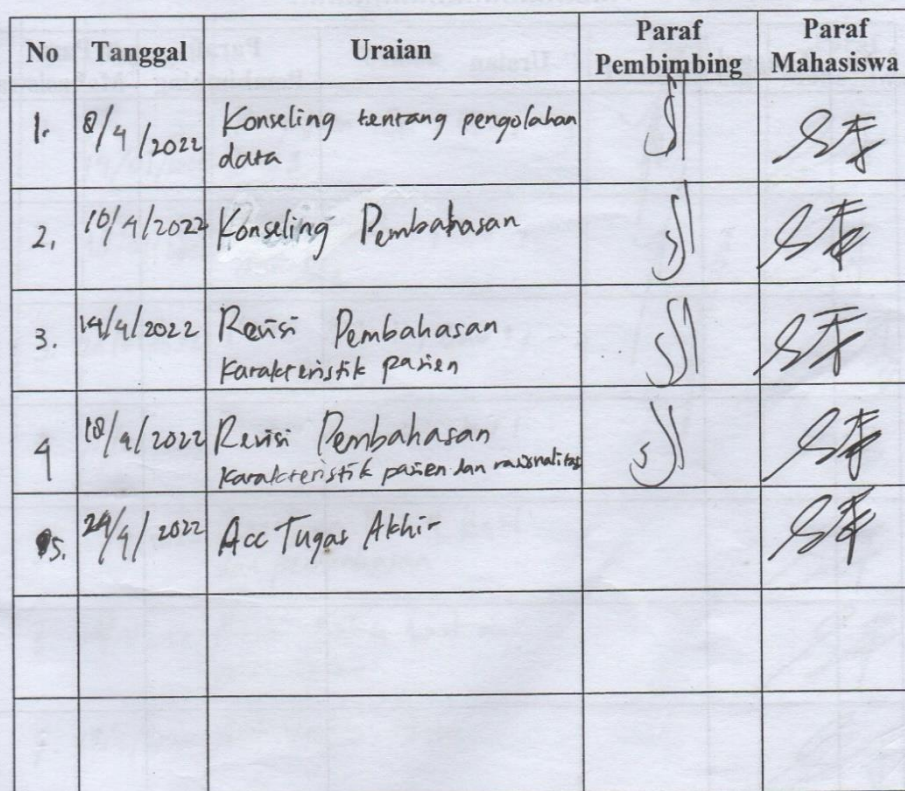 No Tanggal Uraian Paraf Pembimbing Paraf Mahasiswa
1. 8/4/2022 Konseling tentang pengolahan
data
2. 10/4/2022 Konseling Pembahasan
3. 14/4/2022 Revisi Pembahasan
Karakteristik pasien
4 18/4/2022 Revisi Pembahasan
Karakteristik pasien dan rasionalitas
5. 29/4/2022 Acc Tugas Akhir